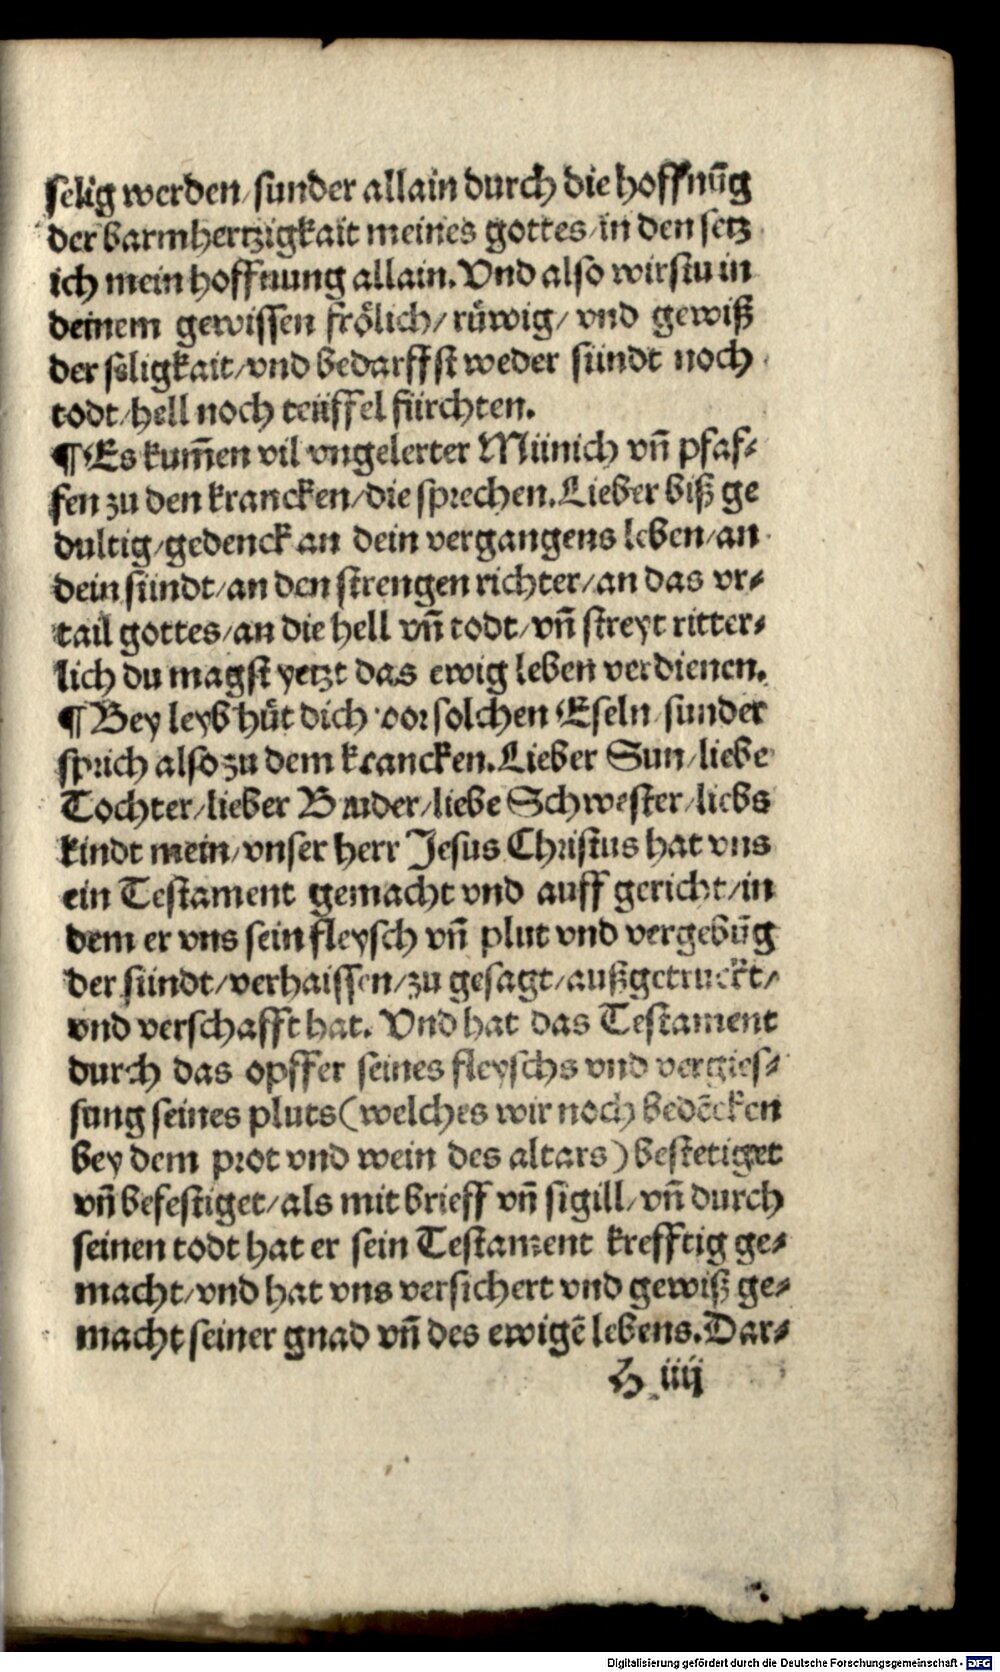 selig werden/ sunder allain durch die hoffnūg
der barmhertzigkait meines gottes/ in den setz
ich mein hoffnung allain. Vnd also wirstu in
deinem gewissen frölich/ rüwig/ vnd gewiß
der säligkait/ vnd bedarffst weder sündt noch
todt/ hell noch teüffel fürchten.
¶ Es kum̄en vil vngelerter Münich vn̄ pfaf⸗
fen zu den krancken/ die sprechen. Lieber biß ge
dultig/ gedenck an dein vergangens leben/ an
dein sündt/ an den strengen richter/ an das vr⸗
tail gottes/ an die hell vn̄ todt/ vn̄ streyt ritter⸗
lich du magst yetzt das ewig leben verdienen.
¶ Bey leyb hüt dich vor solchen Eseln/ sunder
sprich also zu dem krancken. Lieber Sun/ liebe
Tochter/ lieber Bruder/ liebe Schwester/ liebs
kindt mein/ vnser herr Jesus Christus hat vns
ein Testament gemacht vnd auff gericht/ in
dem er vns sein fleysch vn̄ plut vnd vergebūg
der sündt/ verhaissen/ zu gesagt/ außgetruckt/
vnd verschafft hat. Vnd hat das Testament
durch das opffer seines fleyschs vnd vergies⸗
sung seines pluts (welches wir noch bedēcken
bey dem prot vnd wein des altars) bestetiget
vn̄ befestiget/ als mit brieff vn̄ sigill/ vn̄ durch
seinen todt hat er sein Testament krefftig ge⸗
macht/ vnd hat vns versichert vnd gewiß ge⸗
macht seiner gnad vn̄ des ewigē lebens. Dar⸗
H iiij
Digitalisierung gefördert durch die Deutsche Forschungsgemeinschaft - DFG